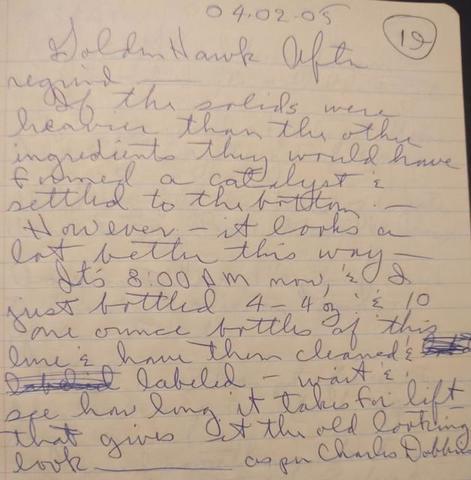 04.02.05
19
Golden Hawk After
regrind —
If the solids were
heavier than the other
ingredients they would have
formed a catalyst &
settled to the bottom. —
However — it looks a
lot better this way —
It's 8:00 AM now, & I
just bottled 4 – 4 oz & 10
one ounce bottles of this
lure & have them cleaned &
labeled – wait &
see how long it takes for lift
that gives it the old looking
look — as per Charles Dobbins